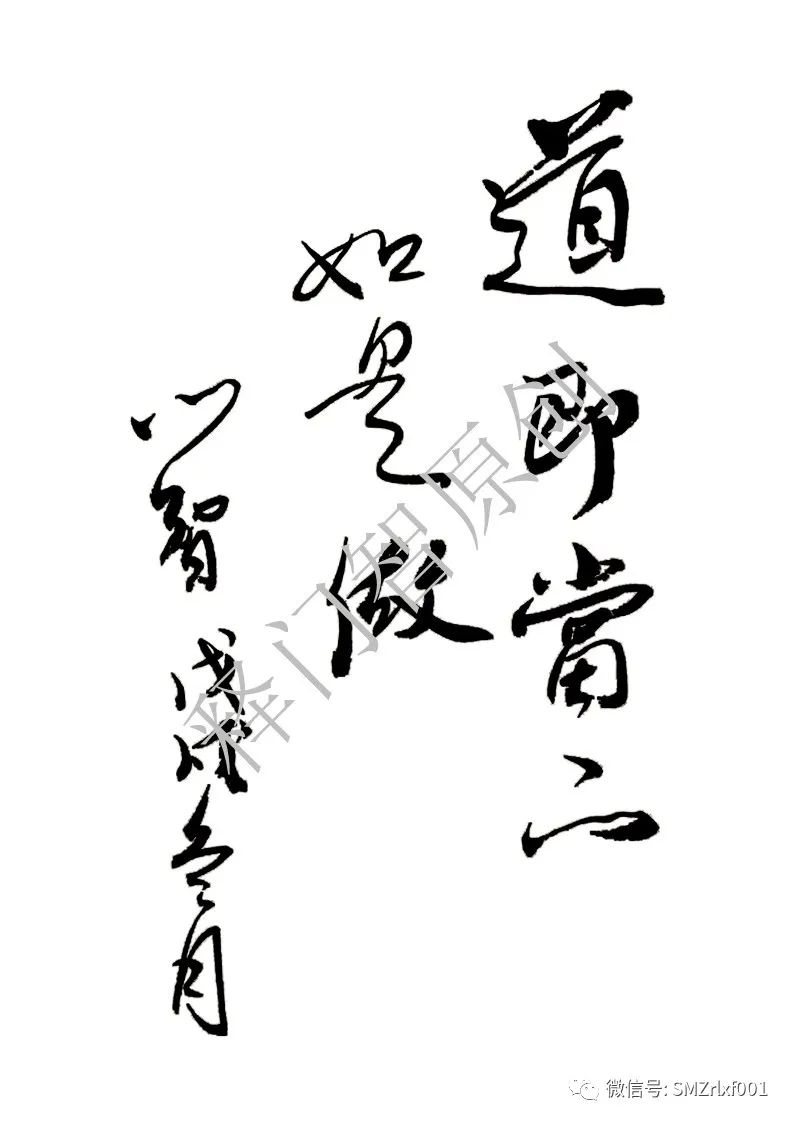 道即當下
如是做
心智 戊戌冬月
释门智原创
微信号: SMZrlxf001